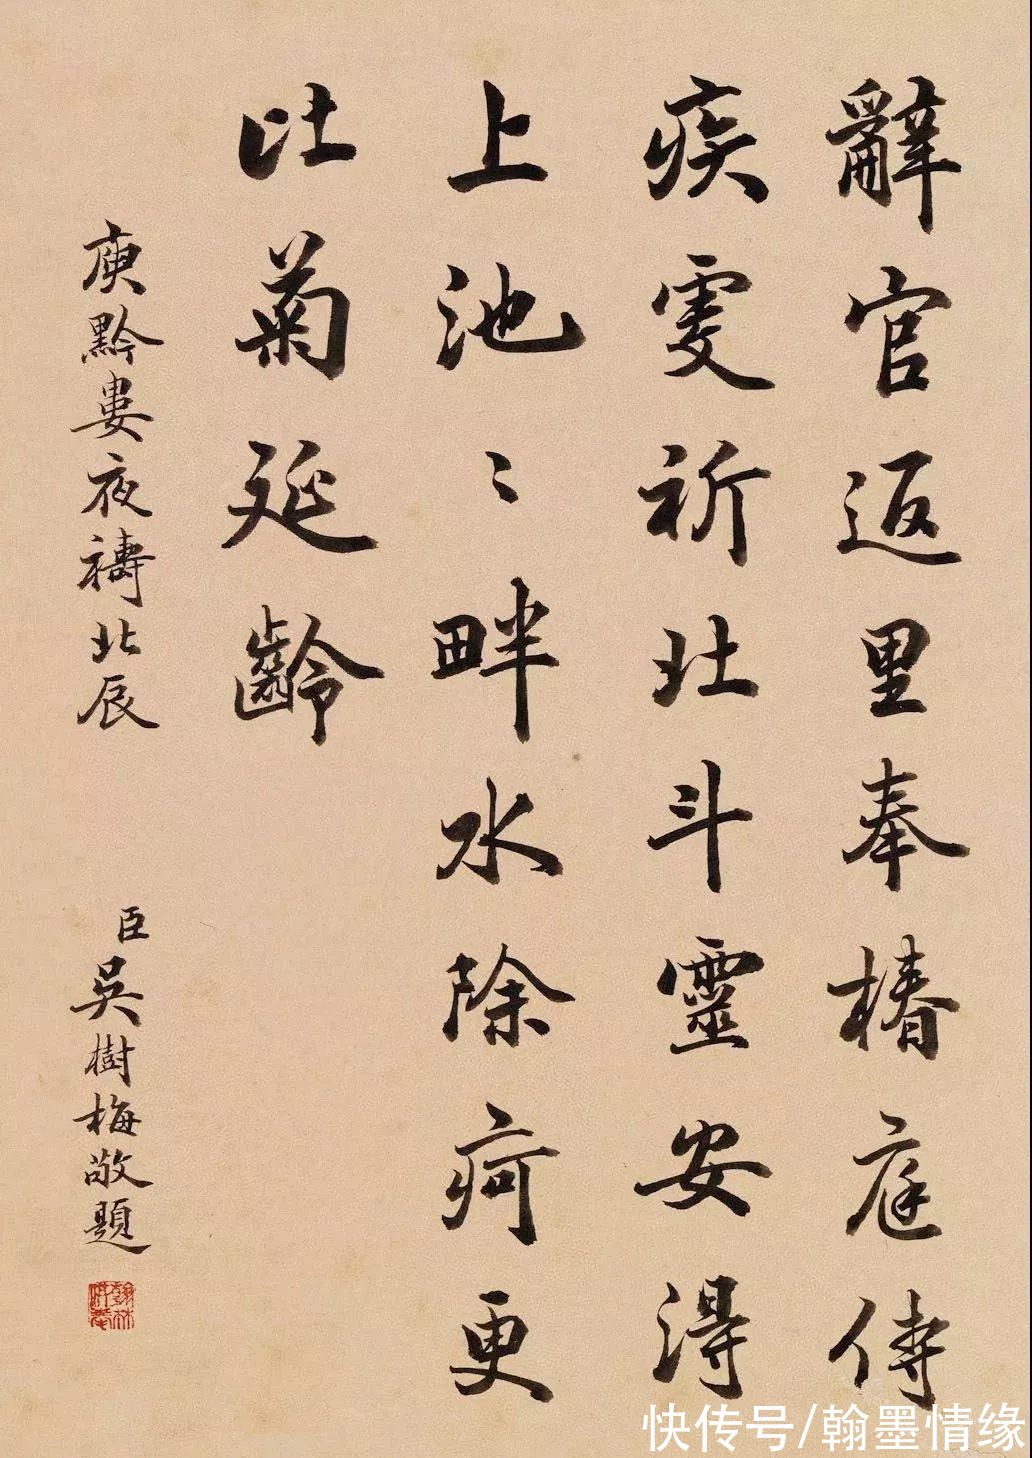 辭官返里奉椿庭侍
疾虔祈北斗靈安得
上池〻畔水除疴更
比菊延齡
庾黔婁夜禱北辰
臣吳樹梅敬題
快传号/翰墨情缘